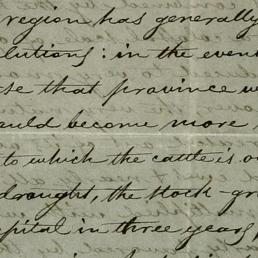 region has generally
olutions: in the even
se that province w
ould become more
to which the cattle is o
drought, the stock-gr
pital in three years,